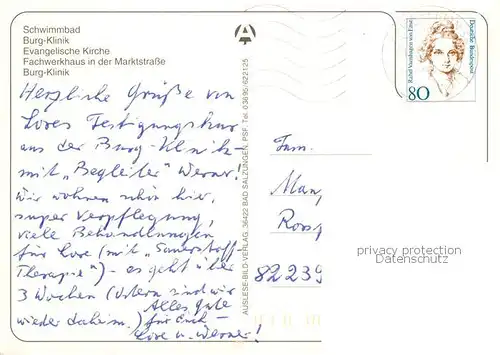 Schwimmbad
Burg-Klinik
Evangelische Kirche
Fachwerkhaus in der Marktstraße
Burg-Klinik
Herzliche Grüße von
Lores Festigungskur
aus der Burg-Klinik –
mit „Begleiter“ Werner!
Wir wohnen schön hier,
super Verpflegung,
viele Behandlungen
für Lore (mit „Sauerstoff-
Therapie“) – es geht über
3 Wochen (Ostern sind wir
wieder daheim.)
Alles Gute
für Euch –
Lore u. Werner!
AUSLESE-BILD-VERLAG, 36422 BAD SALZUNGEN, PSF, Tel. 03695/622125
Rahel Varnhagen von Ense
Deutsche Bundespost
80
Fam.
Man
Ross
82239
privacy protection
Datenschutz